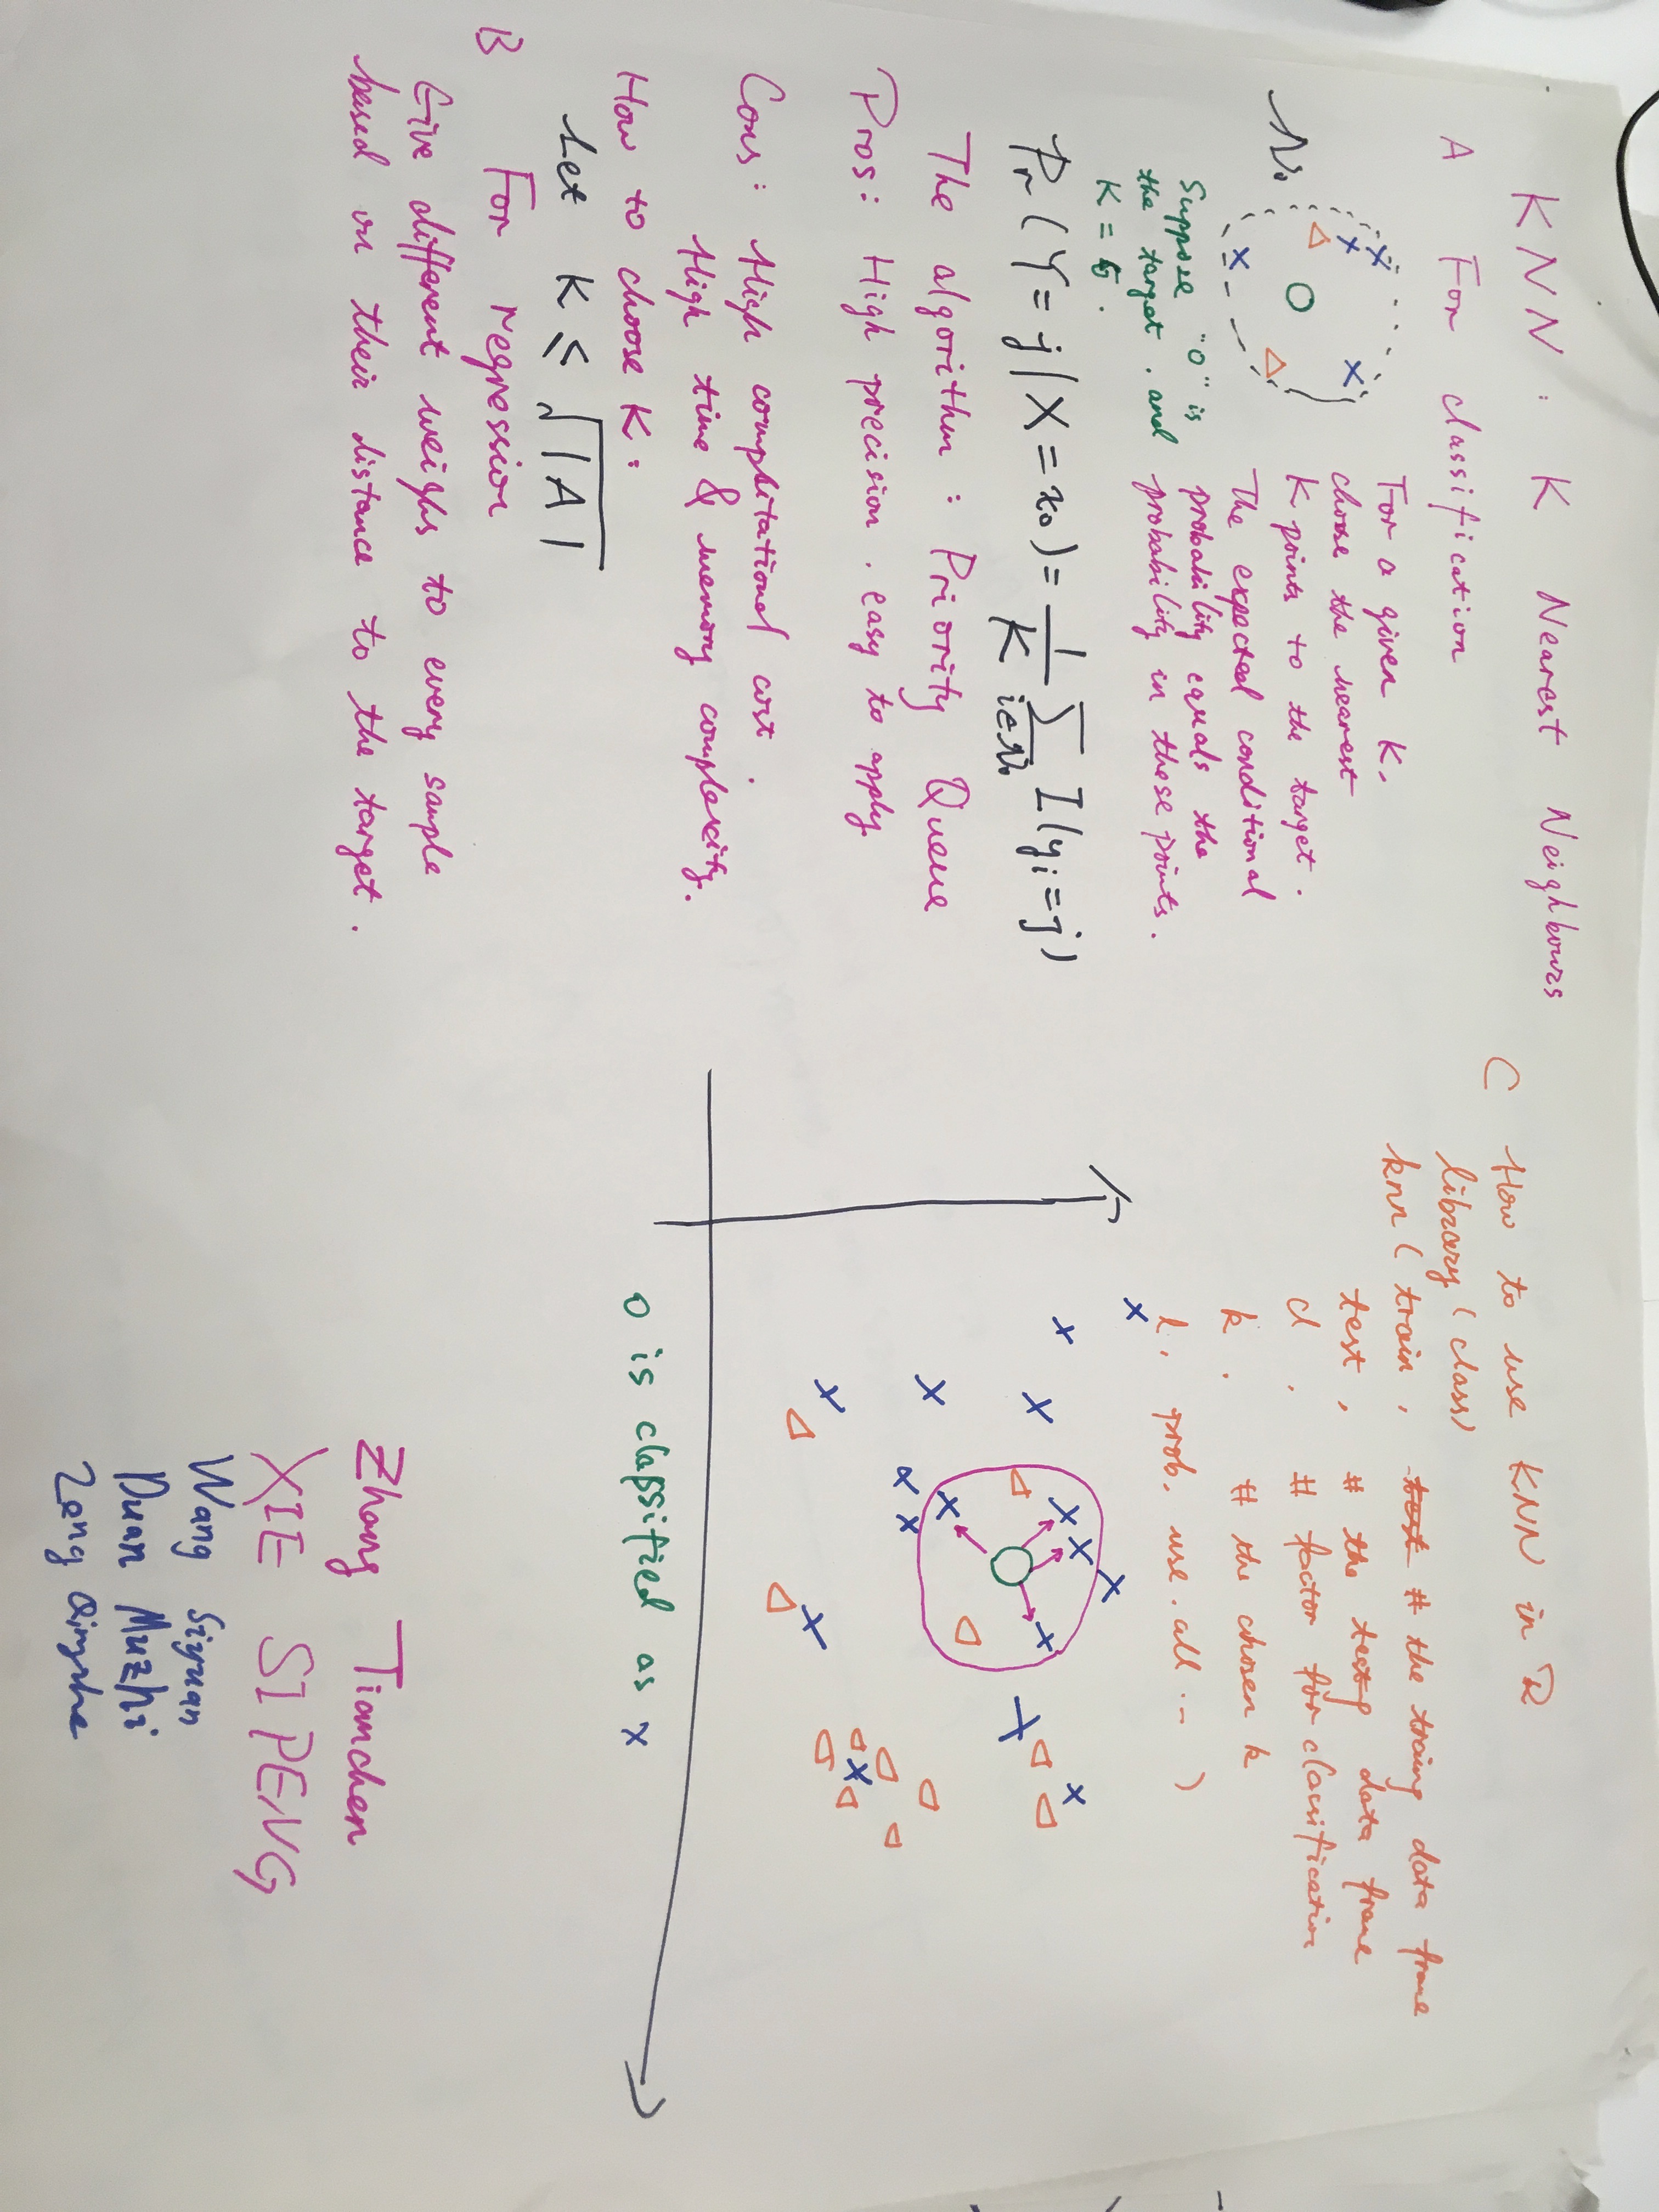 KNN : K Nearest Neighbours
A For classification
N₀
For a given K,
choose the nearest
K points to the target.
The expected conditional
probability equals the
probability in these points.
Suppose "O" is
the target, and
K = 6.
Pr(Y=j|X=x₀)=1/K Σ i∈N₀ I(yᵢ=j)
The algorithm : Priority Queue
Pros: High precision, easy to apply
Cons: High complitational cost.
High time & memory complexcity.
How to choose K:
Let K ≤ √|A|
B For regression
Give different weighs to every sample
based on their distance to the target.
C How to use KNN in R
library(class)
knn(train, # the traing data frame
test, # the testg data frame
cl, # factor for classification
k, # the chosen k
l, prob, use.all ... )
O is classified as x
Zhang Tianchen
XIE SIPENG
Wang Siyuan
Duan Muzhi
Zeng